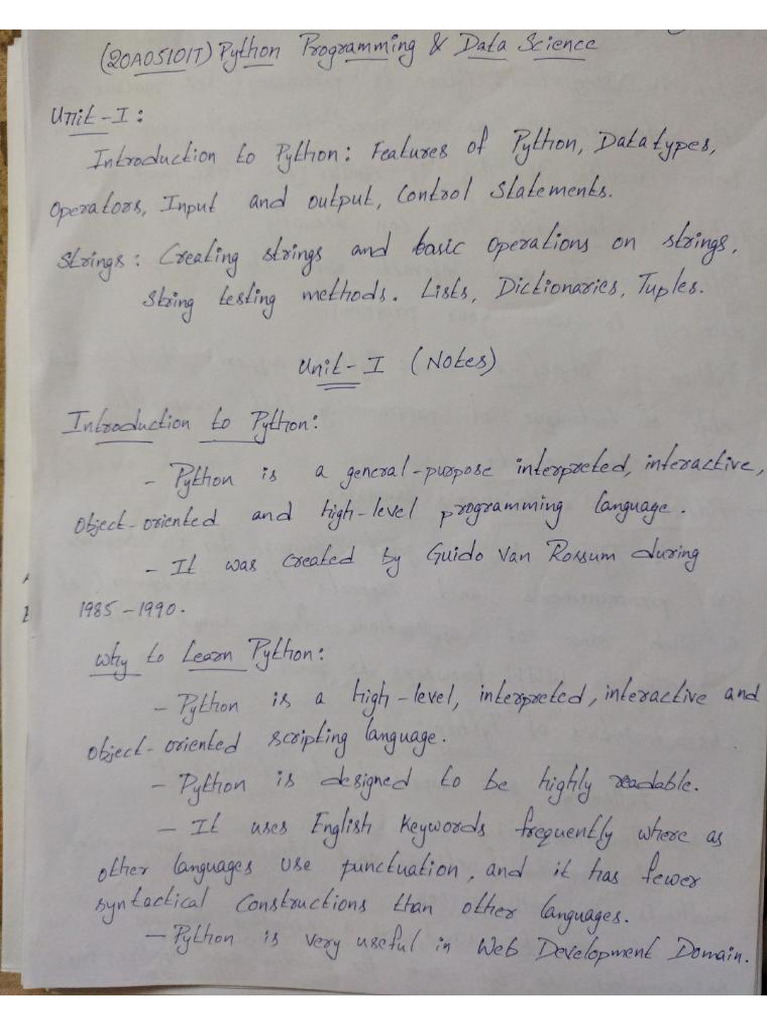 (20A05101T) Python Programming & Data Science
Unit-I:
Introduction to Python: Features of Python, Datatypes,
Operators, Input and output, Control Statements.
Strings: Creating strings and basic operations on strings,
string testing methods. Lists, Dictionaries, Tuples.
Unit-I (Notes)
Introduction to Python:
- Python is a general-purpose interpreted, interactive,
object-oriented and high-level programming language.
- It was created by Guido Van Rossum during
1985-1990.
Why to Learn Python:
- Python is a high-level, interpreted, interactive and
object-oriented scripting language.
- Python is designed to be highly readable.
- It uses English Keywords frequently where as
other languages use punctuation, and it has fewer
syntactical constructions than other languages.
- Python is very useful in Web Development Domain.